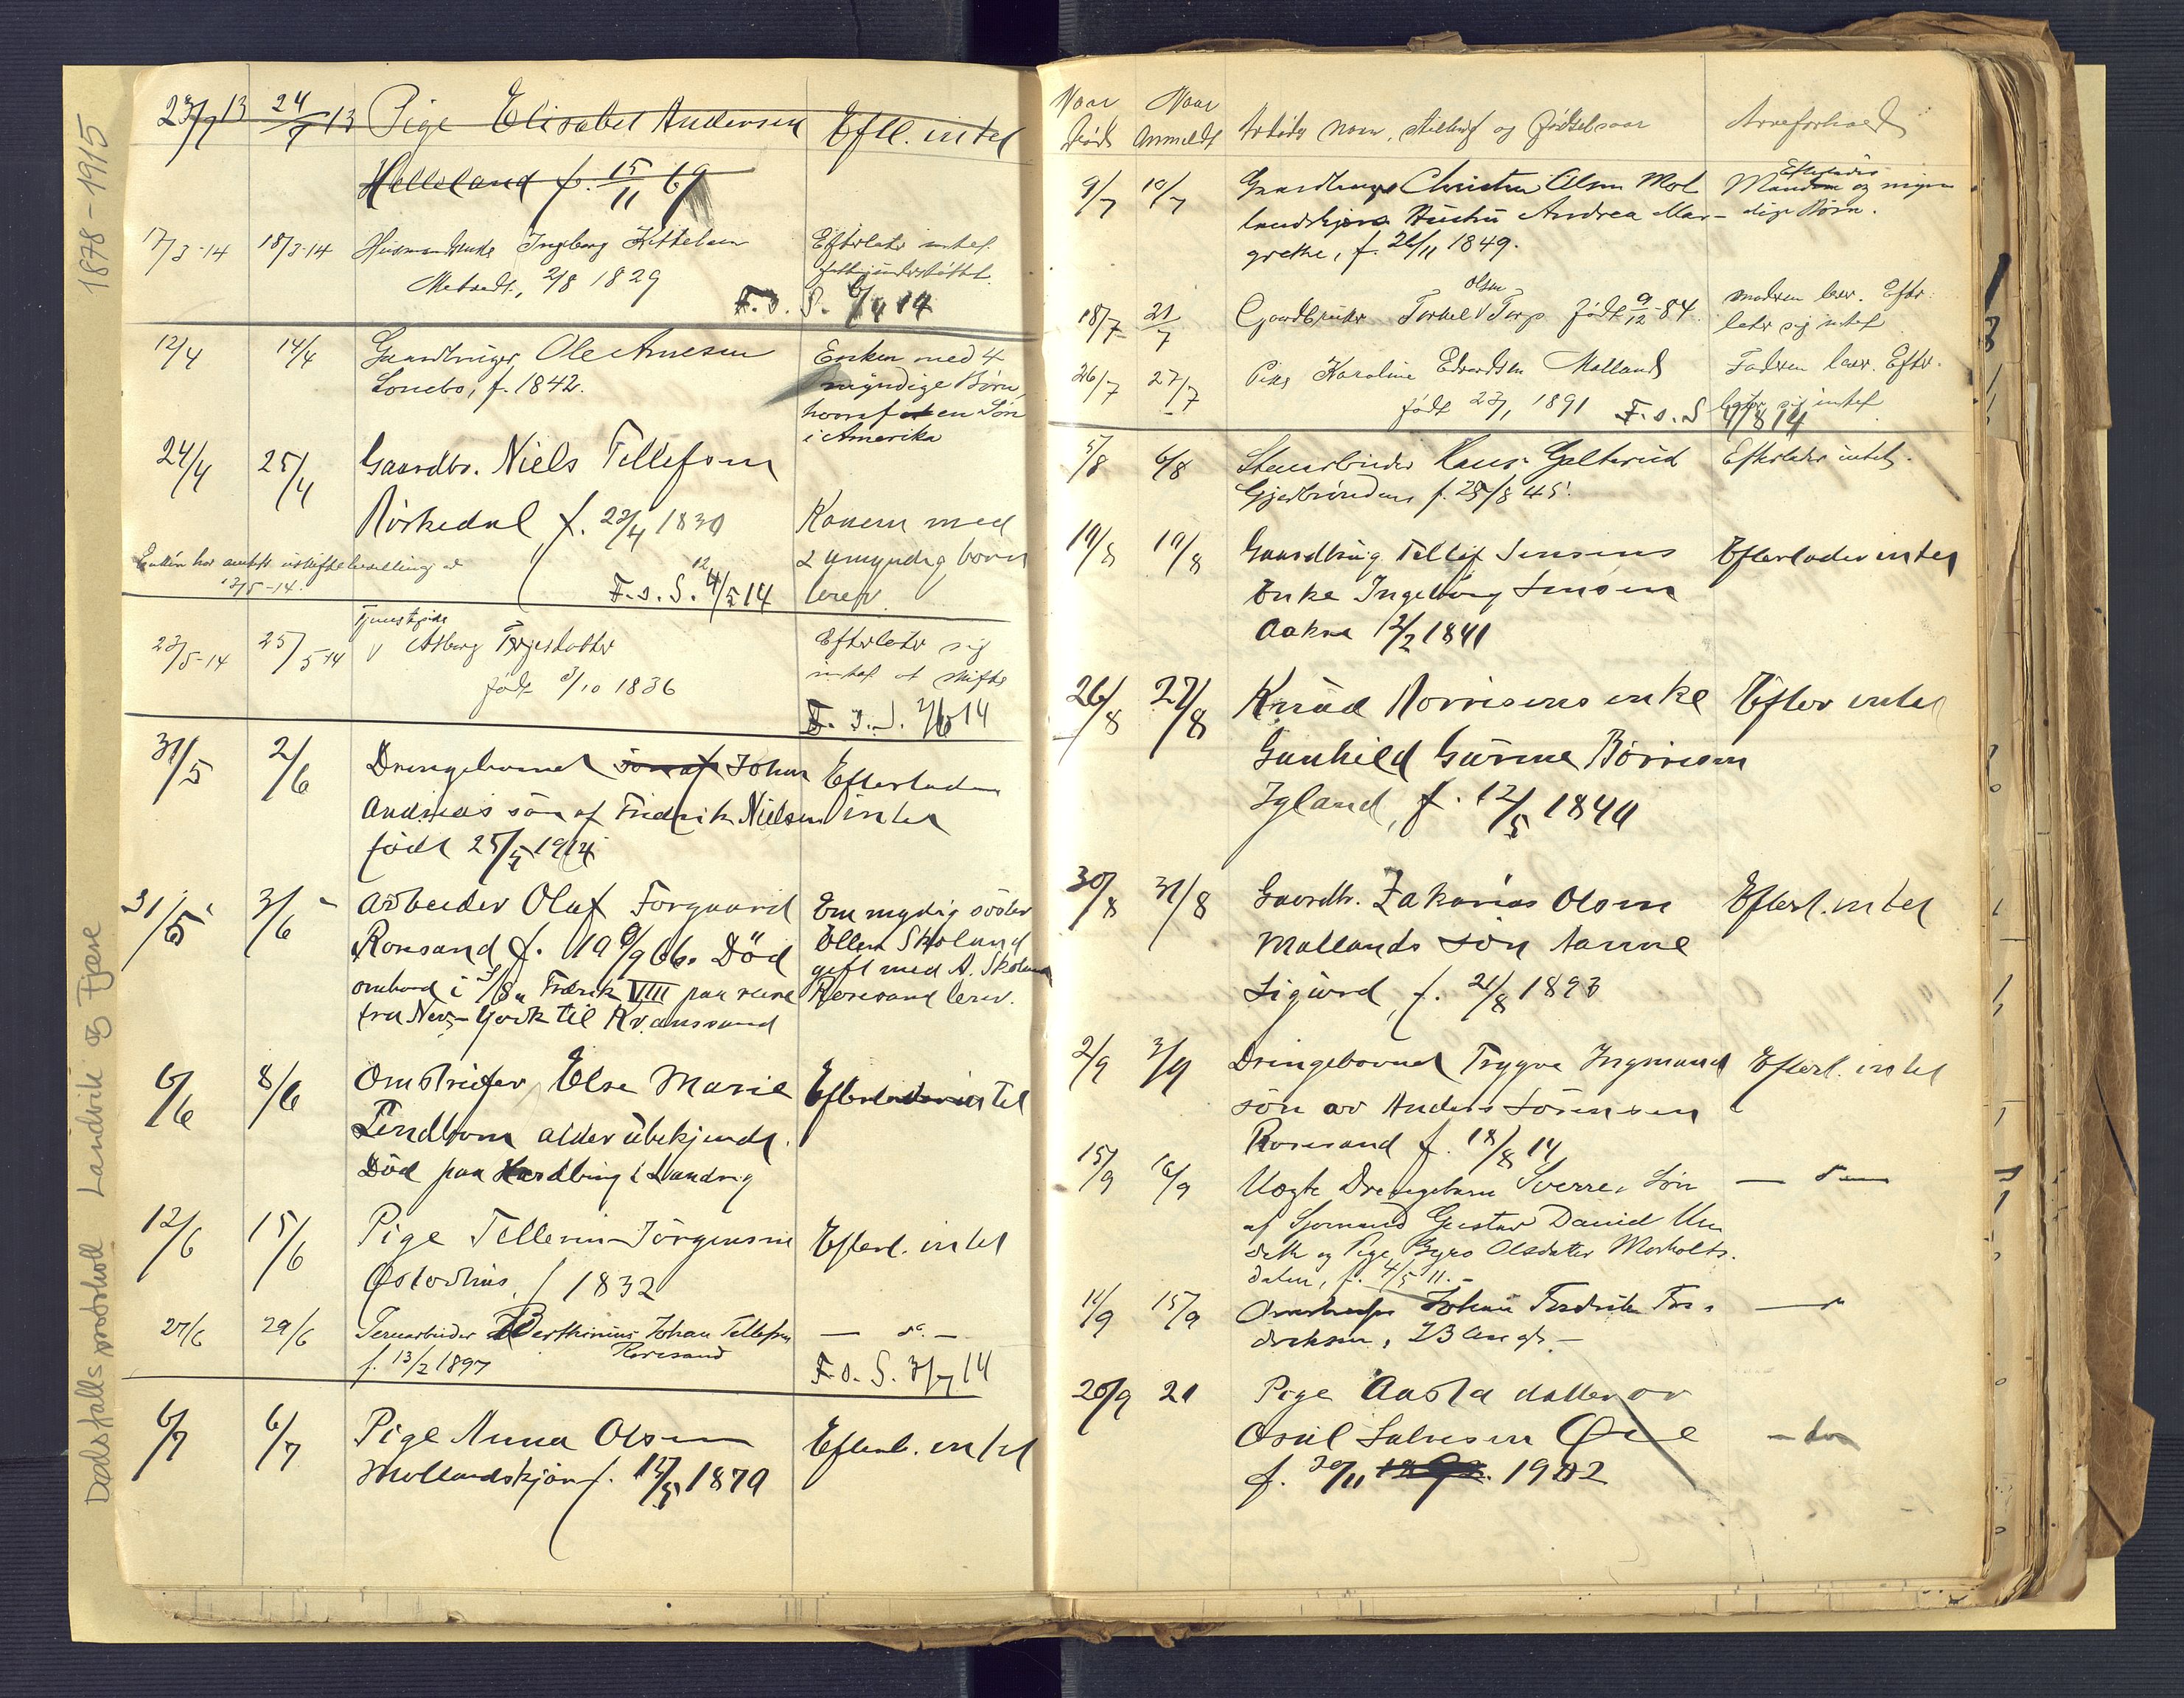 1878-1915
Dødsfallsprotokoll Landvik og Fjære
23/7 13 24/7 13 Pige Elisabet Andersen Eftl. intet
Helleland f. 15/11 69
17/3-14 18/3-14 Husmandsenke Ingeborg Kittelsen Efterlater intet
2/8 1829
F.s.S. 14
12/4 14/4 Gaardbruger Ole Arnesen Enken med 4
f. 1842. myndige Børn,
hvoraf en Søn
i Amerika
24/4 25/4 Gaardbr. Niels Tellefsen
Rörkedal f. 23/4 1830 Konen med
2 umyndig börn
12/5-14.
F.s.S. 4/5 14 lever
Tjenestpike
23/5-14 25/5-14 Asborg Tærjesdatter Efterlater sig
født 3/10 1836 intet at skifte
F.s.S. 2/6 14
31/5 2/6 Drengebarnet sön af Johan Efterlader
Andreas sön af Fridrik Nielsen intet
född 25/5 1914
31/5 3/6 Arbeider Olaf Forgaard En mydig söster
Roresand f. 19 6/9 66. Död Ellen Skoland
ombord i S/S Fredrik VIII paa reise gift med A. Skoland
fra New-York til Kr.anssand Roresand lever.
6/6 8/6 Omstreifer Else Marie Efterlader intet
Lindbom alder ubekjendt.
Död paa i Landvig
12/6 15/6 Pige Tellevine Jörgensen Efterl. intet
f 1832
27/6 29/6 Berthinius Johan Tellefsen — do. —
f. 13/2 1897 Roresand F.s.S. 3/7 14
6/7 6/7 Pige Anna Olsen Efterl. intet
Mollandskjön f. 17/5 1879
Naar Naar
Död Anmeldt Avdødes navn, stilling og fødselsaar Arveforhold
9/7 10/7 Gaardbruger Christen Olsen Mol Efterlader
landskjøns Hustru Andrea Mar- Manden og myn
grethe, f. 26/11 1849. dige Børn.
Olsen
18/7 21/7 Gaardbruker Torkel Torp født 9/12-84 moderen lever. Efter-
later sig intet
26/7 27/7 Pike Karoline Edvardsen Molland Faderen lever. Efter-
født 23/1 1891 F.s.S 4/8 14 later sig intet
5/8 6/8 Hans Galterud Efterlader intet.
f. 25/8 45.
19/8 19/8 Gaardbrug Tellef Jensens Efterlader intet
Enke Ingeborg Jensen
12/2 1841
26/8 27/8 Knud Norrisens enke Efter intet
Gunhild Gurine Börrisen
Igland, f. 12/5 1840
30/8 31/8 Gaardbr. Zakarias Olsen Efterl. intet
Mollands sön Aanne
Sigurd, f. 21/8 1893
2/9 3/9 Drengebarnet Trygve Ingmund Efterl. intet
sön av Anders Sörensen
Roresand f. 18/8 14
15/9 16/9 Uægte Drengebarn Sverre, Søn — do —
af Sjømand Gustav David Un
deth og Pige Gyro Olsdatter Morholts-
dalen, f. 4/5 11.-
14/9 15/9 Omstreifer Johan Fredrik Fre-
driksen, 73 Aar gl.-
20/9 21 Pige Aasta datter av
Osuld Salvesen Öie — do
f. 20/11 1902